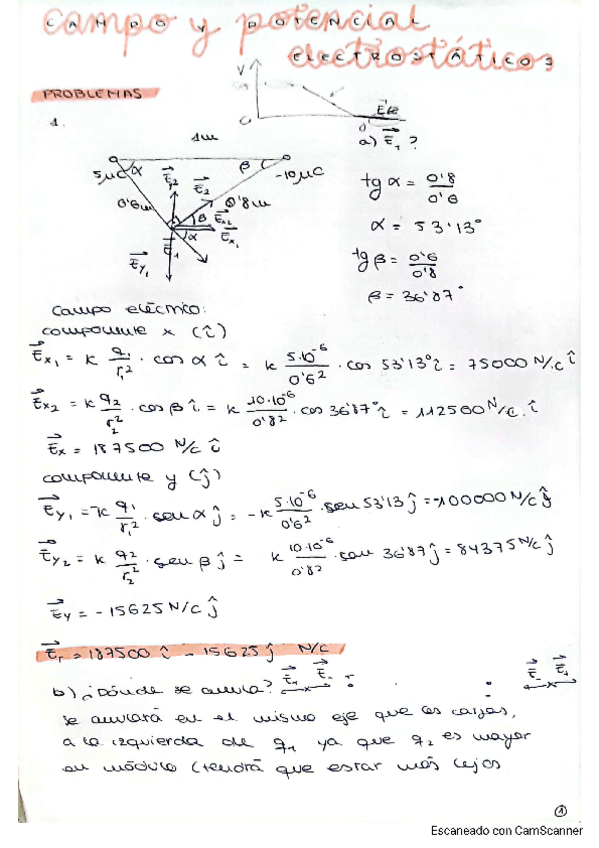 campo y potencial
CAMPO Y POTENCIAL
electrostáticos
ELECTROSTÁTICOS
PROBLEMAS
V
0
1.
1m
a) E⃗₁ ?
5μC α
β -10μC
E⃗₂
0'6m
0'8m
β E⃗x₂
α E⃗x₁
E⃗₁
E⃗y₁
tg α = 0'8/0'6
α = 53'13°
tg β = 0'6/0'8
β = 36'87°
Campo eléctrico:
componente x (î)
E⃗x₁ = k q₁/r₁² · cos α î = k 5·10⁻⁶/0'6² · cos 53'13° î = 75000 N/C î
E⃗x₂ = k q₂/r₂² · cos β î = k 10·10⁻⁶/0'8² · cos 36'87° î = 112500 N/C · î
E⃗x = 187500 N/C î
componente y (ĵ)
E⃗y₁ = -k q₁/r₁² · sen α ĵ = -k 5·10⁻⁶/0'6² · sen 53'13 ĵ = -100000 N/C ĵ
E⃗y₂ = k q₂/r₂² · sen β ĵ = k 10·10⁻⁶/0'8² · sen 36'87 ĵ = 84375 N/C ĵ
E⃗y = -15625 N/C ĵ
E⃗T = 187500 î - 15625 ĵ N/C
b) ¿Dónde se anula?
se anulará en el mismo eje que las cargas,
a la izquierda de q₁ ya que q₂ es mayor
en módulo (tendrá que estar más lejos
1
Escaneado con CamScanner